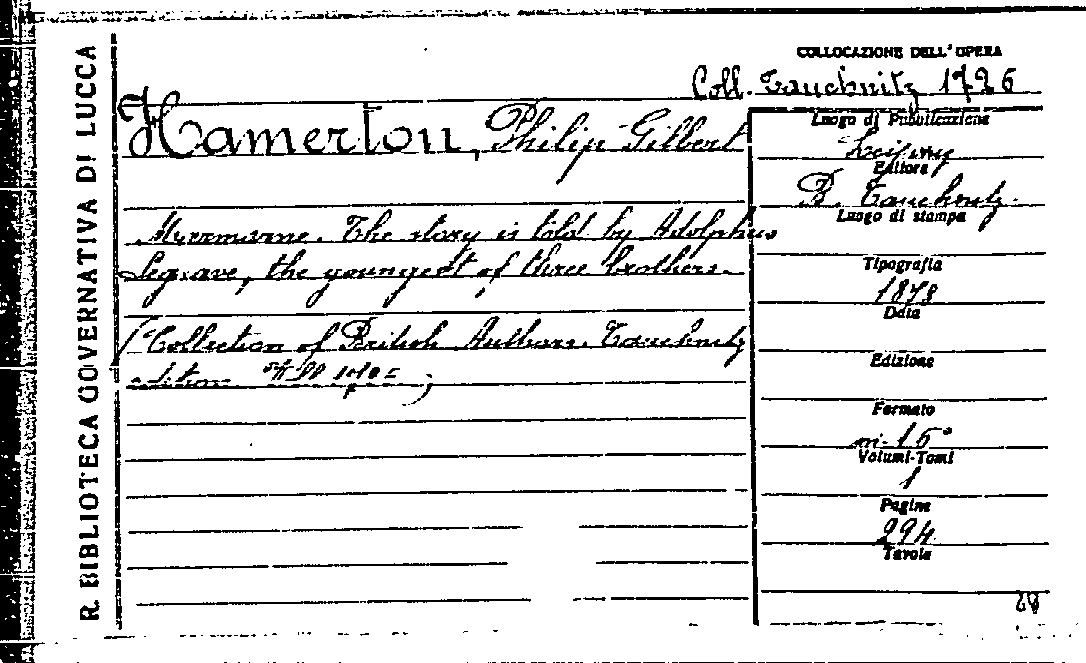 R. BIBLIOTECA GOVERNATIVA DI LUCCA
COLLOCAZIONE DELL'OPERA
Coll. Tauchnitz 1726
Hamerton, Philip Gilbert
Marmorne. The story is told by Adolphus
Segrave, the youngest of three brothers.
(Collection of British Authors. Tauchnitz
edition
Luogo di Pubblicazione
Leipzig
Editore
B. Tauchnitz.
Luogo di stampa
Tipografia
1878
Data
Edizione
Formato
in-16°
Volumi-Tomi
1
Pagine
294
Tavole